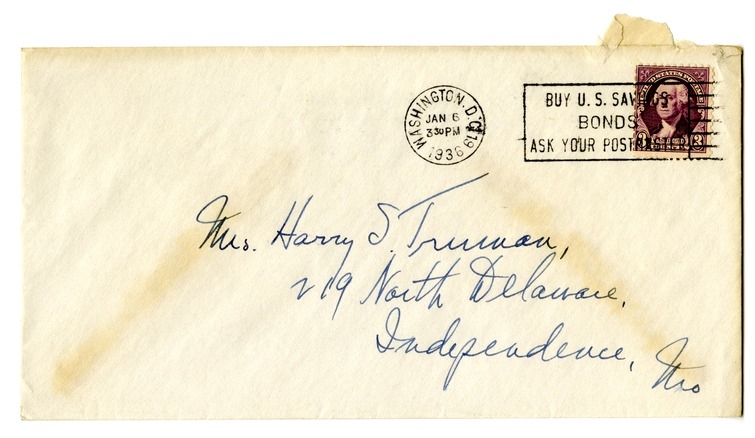 WASHINGTON, D.C. 19
JAN 6
3 30 PM
1936
BUY U.S. SAVINGS
BONDS
ASK YOUR POSTMASTER
UNITED STATES POSTAGE
3 3
Mrs. Harry S. Truman,
219 North Delaware.
Independence, Mo